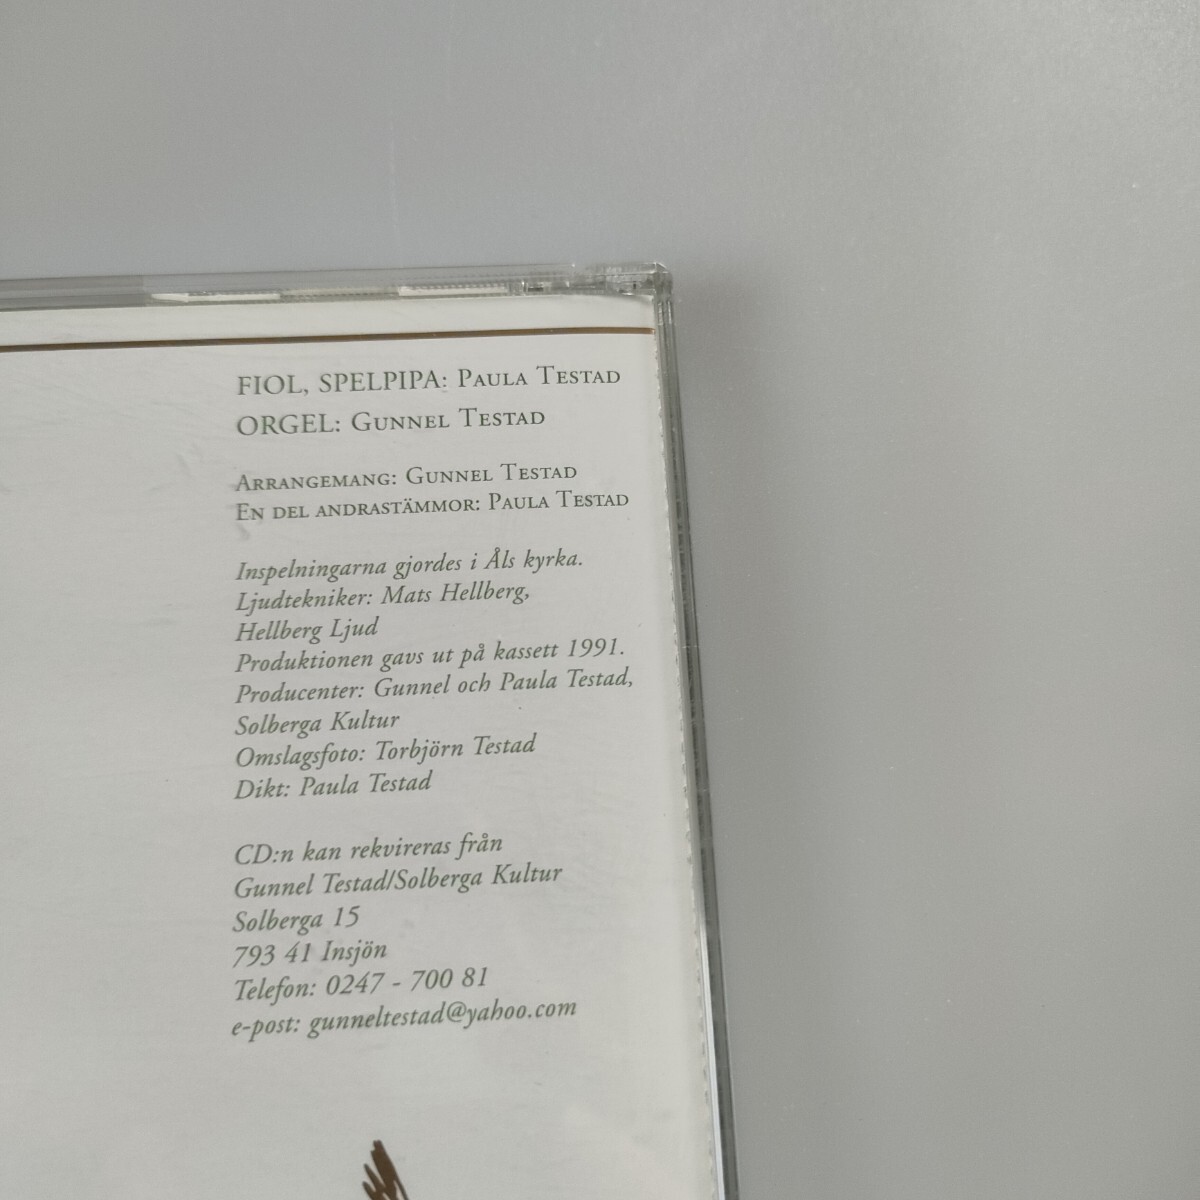 FIOL, SPELPIPA: PAULA TESTAD
ORGEL: GUNNEL TESTAD
ARRANGEMANG: GUNNEL TESTAD
EN DEL ANDRASTÄMMOR: PAULA TESTAD
Inspelningarna gjordes i Åls kyrka.
Ljudtekniker: Mats Hellberg,
Hellberg Ljud
Produktionen gavs ut på kassett 1991.
Producenter: Gunnel och Paula Testad,
Solberga Kultur
Omslagsfoto: Torbjörn Testad
Dikt: Paula Testad
CD:n kan rekvireras från
Gunnel Testad/Solberga Kultur
Solberga 15
793 41 Insjön
Telefon: 0247 - 700 81
e-post: gunneltestad@yahoo.com